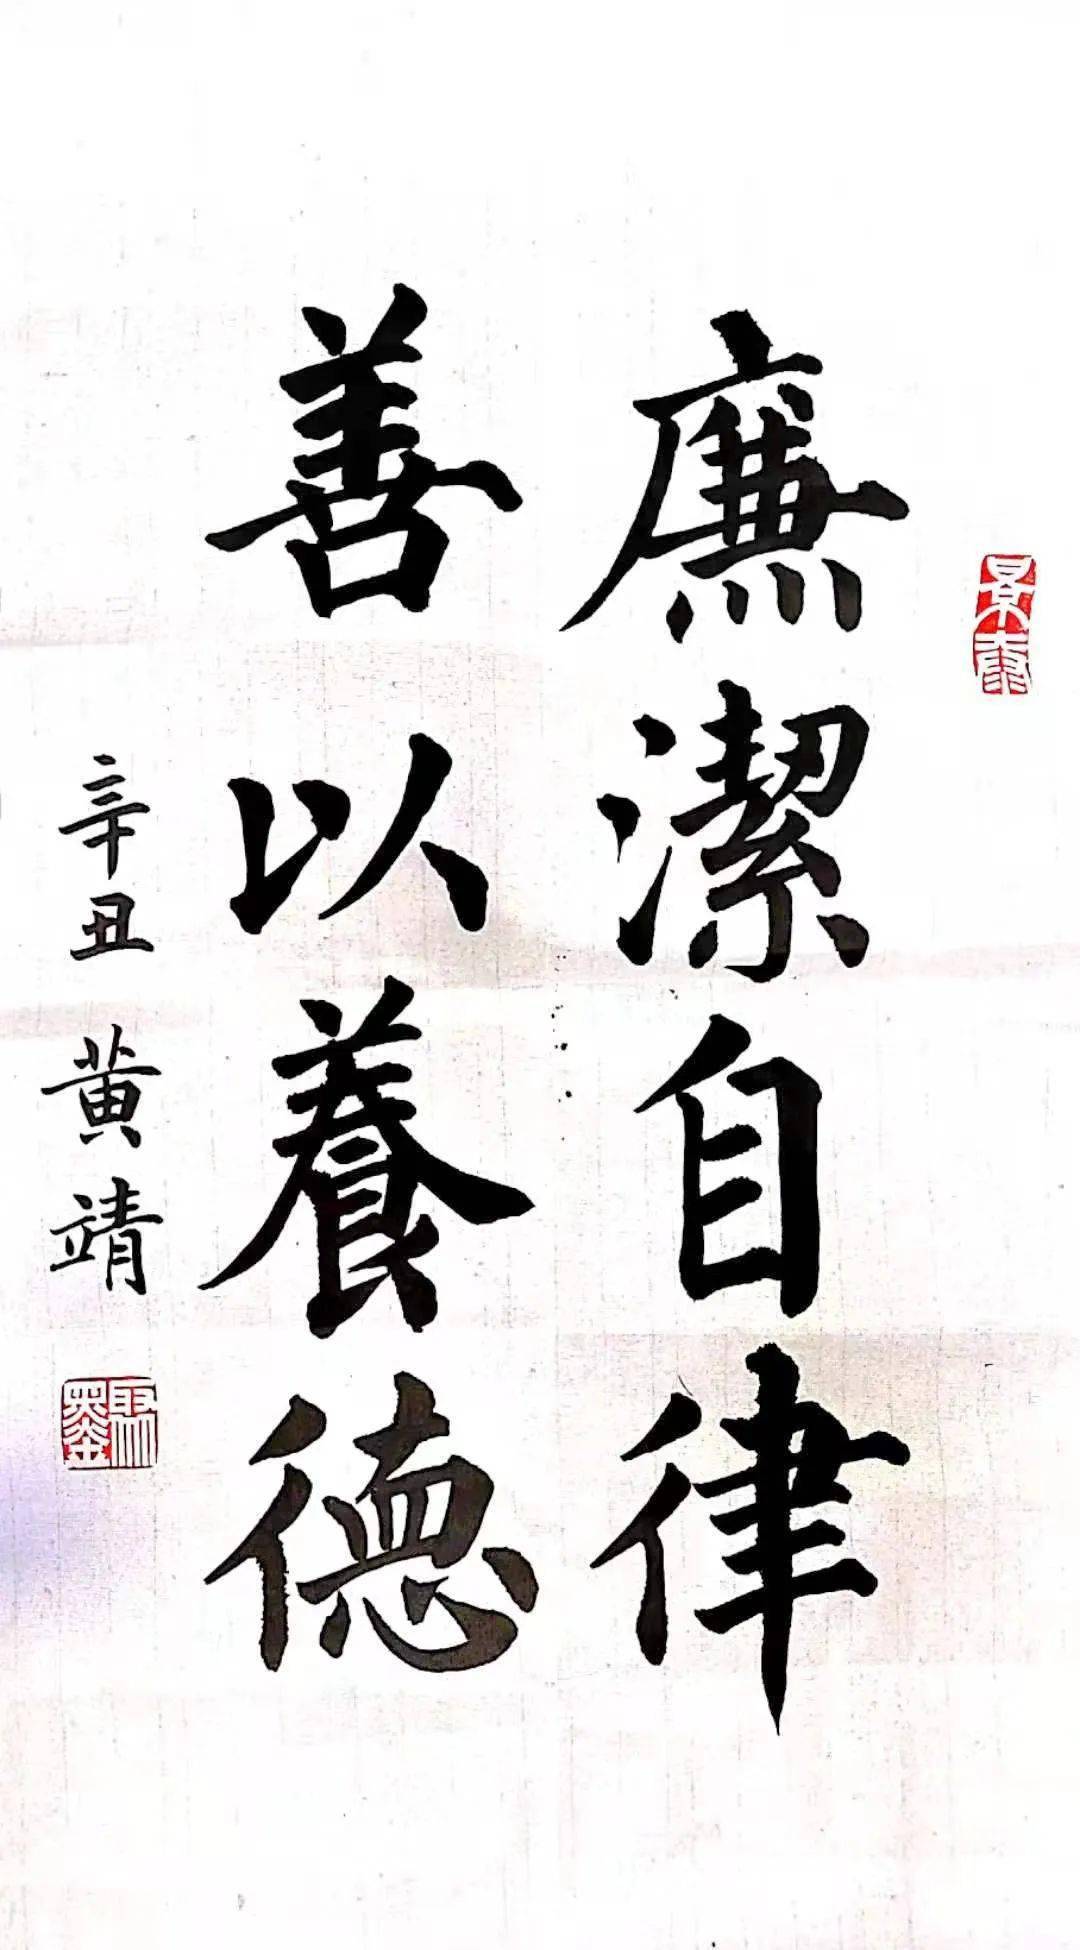 廉潔自律
善以養德
辛丑 黄靖